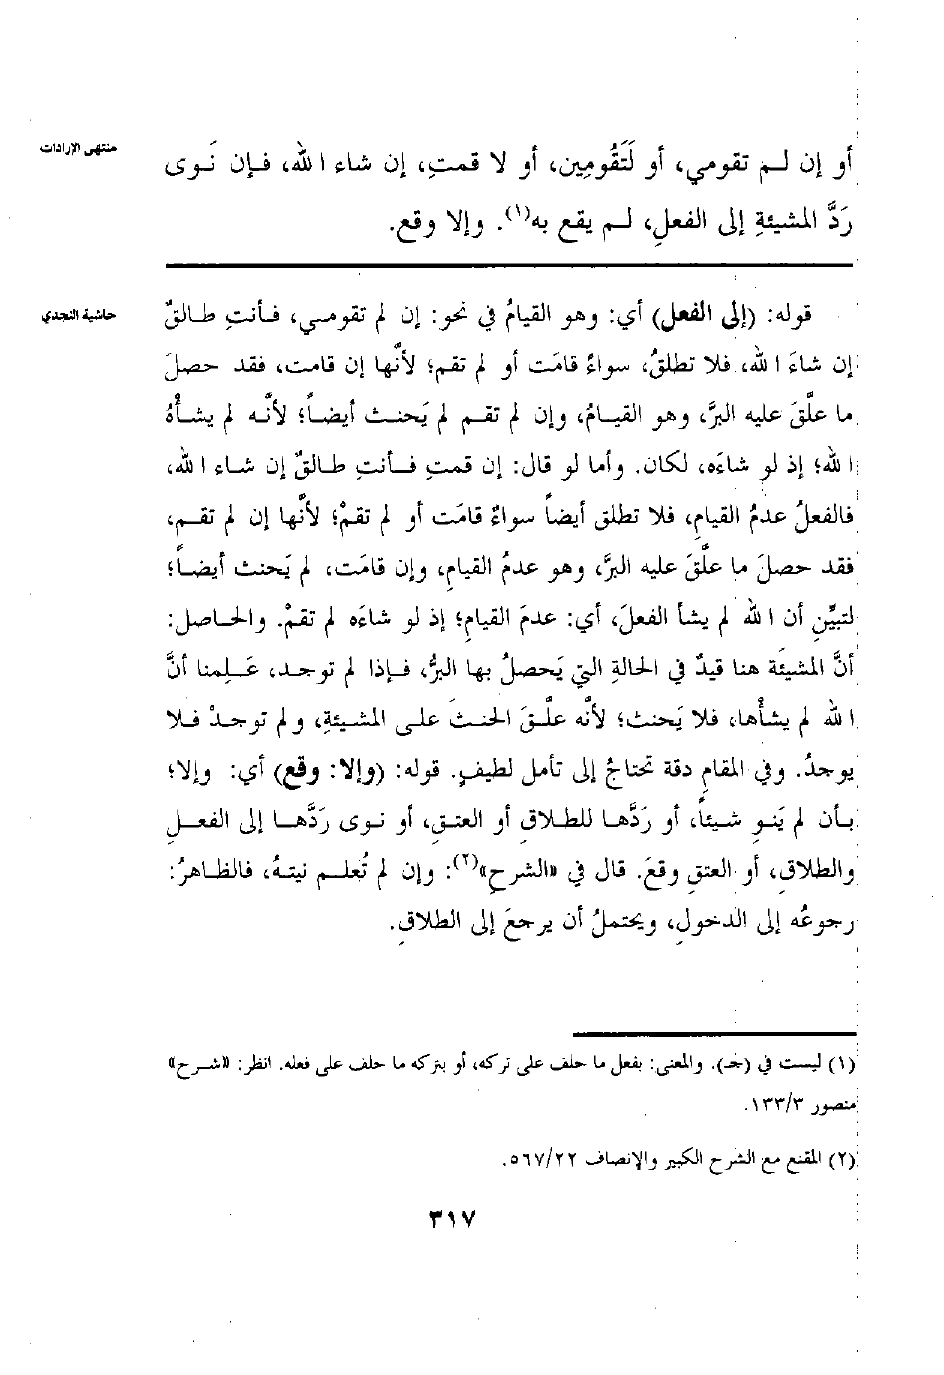 منتهى الإرادات
أو إن لـم تقومي، أو لَتَقُومِين، أو لا قمتِ، إن شاء الله، فـإن نَـوى
رَدَّ المشيئةِ إلى الفعلِ، لـم يقع به(١). وإلا وقع.
حاشية النجدي
قوله: (إلى الفعل) أي: وهو القيامُ في نحو: إن لم تقومـي، فـأنتِ طـالقٌ
إن شاءَ الله، فلا تطلقُ، سواءٌ قامَت أو لم تقم؛ لأنَّها إن قامت، فقد حصلَ
ما علَّقَ عليه البرَّ، وهو القيـامُ، وإن لم تقـم لم يَحنـث أيضـاً؛ لأنَّـه لم يشـأْهُ
الله؛ إذ لو شاءَه، لكان. وأما لو قال: إن قمتِ فـأنتِ طـالقٌ إن شـاء الله،
فالفعلُ عدمُ القيامِ، فلا تطلق أيضاً سواءٌ قامَت أو لم تقمْ؛ لأنَّها إن لم تقـم،
فقد حصلَ ما علَّقَ عليه البرَّ، وهو عدمُ القيامِ، وإن قامَت، لم يَحنث أيضـاً؛
لتبيِّنِ أن الله لم يشأ الفعلَ، أي: عدمَ القيامِ؛ إذ لو شاءَه لم تقمْ. والحـاصل:
أنَّ المشيئة هنا قيدٌ في الحالةِ التي يَحصلُ بها البرُّ، فـإذا لم توجـد، عَـلِمنا أنَّ
الله لم يشأْها، فلا يَحنث؛ لأنَّه علَّـقَ الحنـثَ علـى المشـيئةِ، و لم توجـدْ فـلا
يوجدُ. وفي المقامِ دقة تحتاجُ إلى تأمل لطيفٍ. قوله: (وإلا: وقع) أي: وإلا؛
بـأن لم يَنـوِ شـيئاً، أو رَدَّهـا للطـلاقِ أو العتـقِ، أو نـوى رَدَّهـا إلى الفعـلِ
والطلاقِ، أو العتقِ وقعَ. قال في «الشرحِ»(٢): وإن لم تُعلـم نيتـهُ، فالظاهرُ:
رجوعُه إلى الدخولِ، ويحتملُ أن يرجعَ إلى الطلاقِ.
(١) ليست في (جـ). والمعنى: بفعل ما حلف على تركه، أو بتركه ما حلف على فعله. انظر: «شـرح»
منصور ١٣٣/٣.
(٢) المقنع مع الشرح الكبير والإنصاف ٥٦٧/٢٢.
٣١٧